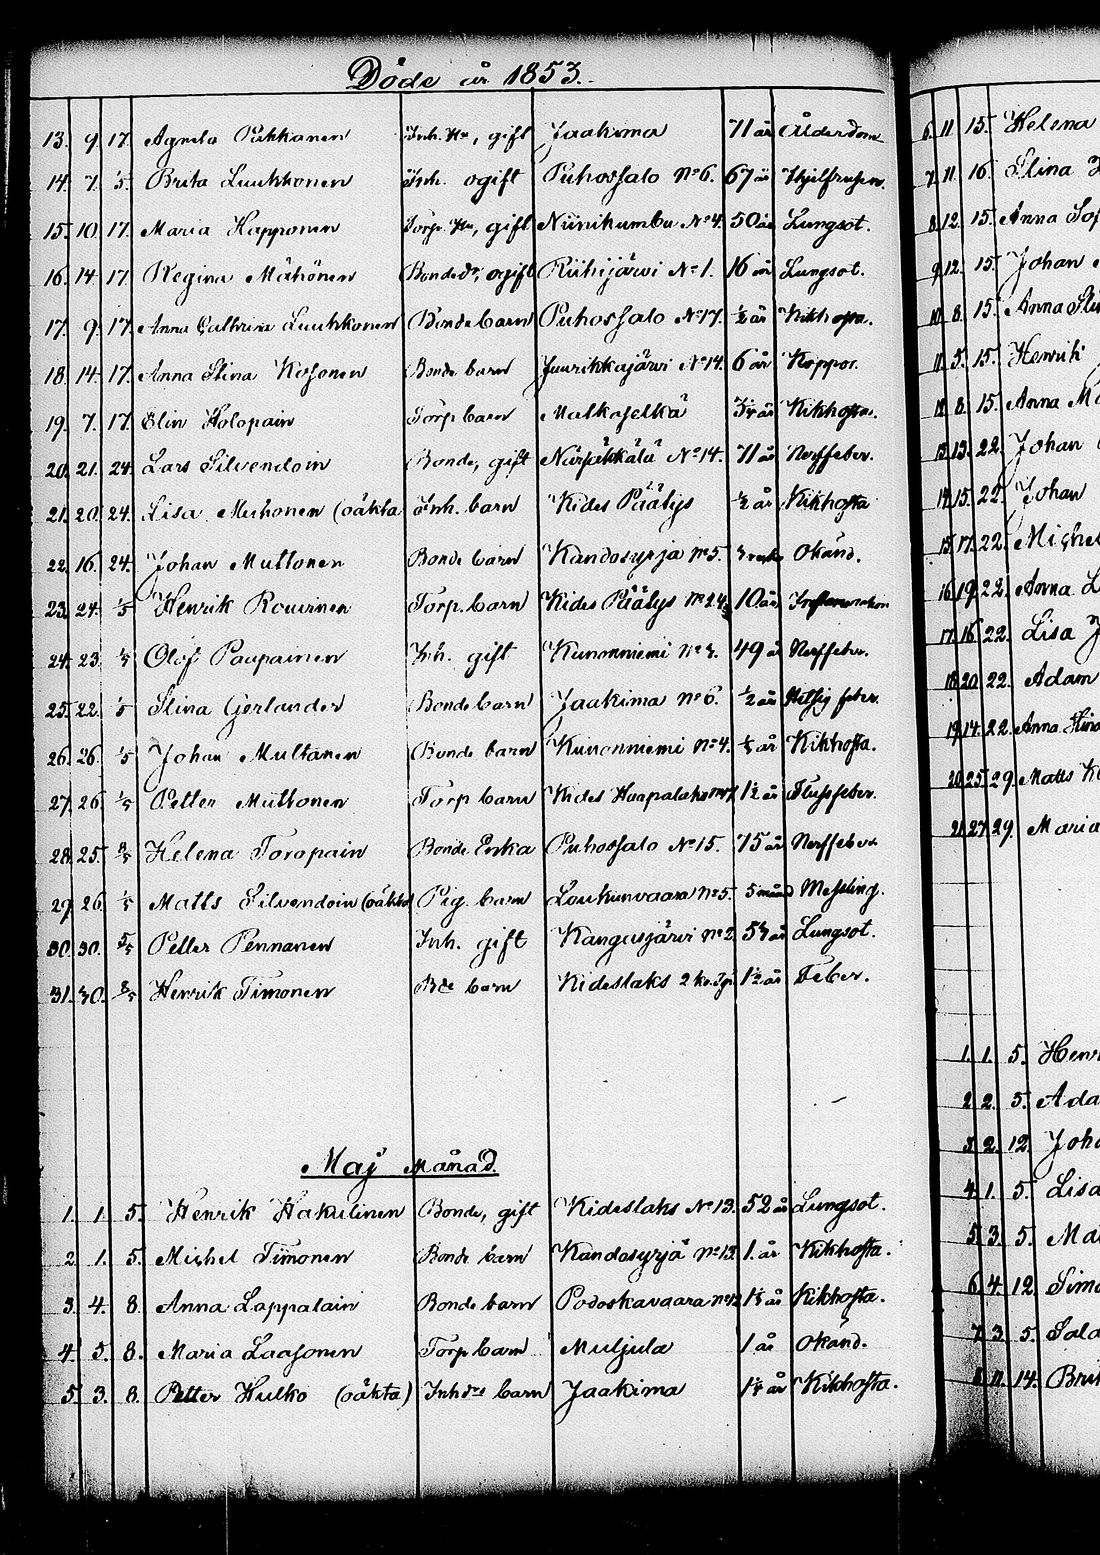 Döde år 1853.
13. 9. 17. Agneta Pukkanen Inh. Hu, gift Jaakima 71 år Ålderdom
14. 7. 1/5. Brita Luukkonen Inh. ogift Puhossalo No 6. 67 år
15. 10. 17. Maria Happonen Torp. Hu, gift Niinikumbu No 4. 50 år Lungsot.
16. 14. 17. Regina Mähönen Bonde dr, ogift Riihijärvi No 1. 16 år Lungsot.
17. 9. 17. Anna Cathrina Luukkonen Bonde barn Puhossalo No 17. 1/2 år Kikhosta.
18. 14. 17. Anna Stina Kosonen Bonde barn Juurikkajärvi No 14. 6 år Koppor.
19. 7. 17. Elin Holopain Torp barn Matkaselkä 3/4 år Kikhosta.
20. 21. 24. Lars Silvendoin Bonde, gift No 14. 71 år Nerffeber.
21. 20. 24. Lisa Muhonen (oäkta Inh. barn Kides Päätys 1/2 år Kikhosta
22. 16. 24. Johan Muttonen Bonde barn Kandosyrja No 5. Okänd.
23. 24. 1/5 Henrik Rouvinen Torp. barn Kides Päätys No 24. 10 år Inflammation
24. 23. 1/5 Olof Paupainen Inh. gift Kunonniemi No 49 år Nerffeber.
25. 22. 1/5 Stina Gerlander Bonde barn Jaakima No 6. 1/2 år Hitsig feber.
26. 26. 1/5 Johan Multanen Bonde barn Kunonniemi No 4. år Kikhosta.
27. 26. 1/5 Petter Muttonen Torp barn Kides Haapalaks 1 1/2 år Flussfeber.
28. 25. 8/5 Helena Toropain Bonde Enka Puhossalo No 15. 75 år Nerffeber
29. 26. 1/5 Matts Silvendoin (oäkta) Pig. barn Loukunvaara No 5. 5 månd Messling.
30. 30. 5/5 Petter Pennanen Inh. gift Kangasjärvi No 2. år Lungsot.
31. 30. 8/5 Henrik Timonen Bde barn Kideslaks 1 1/2 år Feber.
Maj Månad.
1. 1. 5. Henrik Hakulinen Bonde, gift Kideslaks No 13. 52 år Lungsot.
2. 1. 5. Michel Timonen Bonde barn Kandosyrjä No 13. 1. år Kikhosta.
3. 4. 8. Anna Lappalain Bonde barn Podoskavaara No 12 år Kikhosta.
4. 5. 8. Maria Laasonen Torp barn Muljula 1 år Okänd.
5. 3. 8. Petter Hulko (oäkta) Inhdrs barn Jaakima år Kikhosta.
6. 11. 15. Helena
7. 11. 16. Stina
8. 12. 15. Anna
9. 12. 15. Johan
10. 8. 15. Anna
11. 5. 15. Henrik
12. 8. 15. Anna
13. 13. 22. Johan
14. 15. 22. Johan
15. 17. 22. Michel
16. 19. 22. Anna
17. 16. 22. Lisa
18. 20. 22. Adam
19. 14. 22. Anna Stina
20. 25. 29. Matts
21. 27. 29. Maria
1. 1. 5.
2. 2. 5.
3. 2. 12.
4. 1. 5. Lisa
5. 3. 5.
6. 4. 12
7. 3. 5.
8. 11. 14.